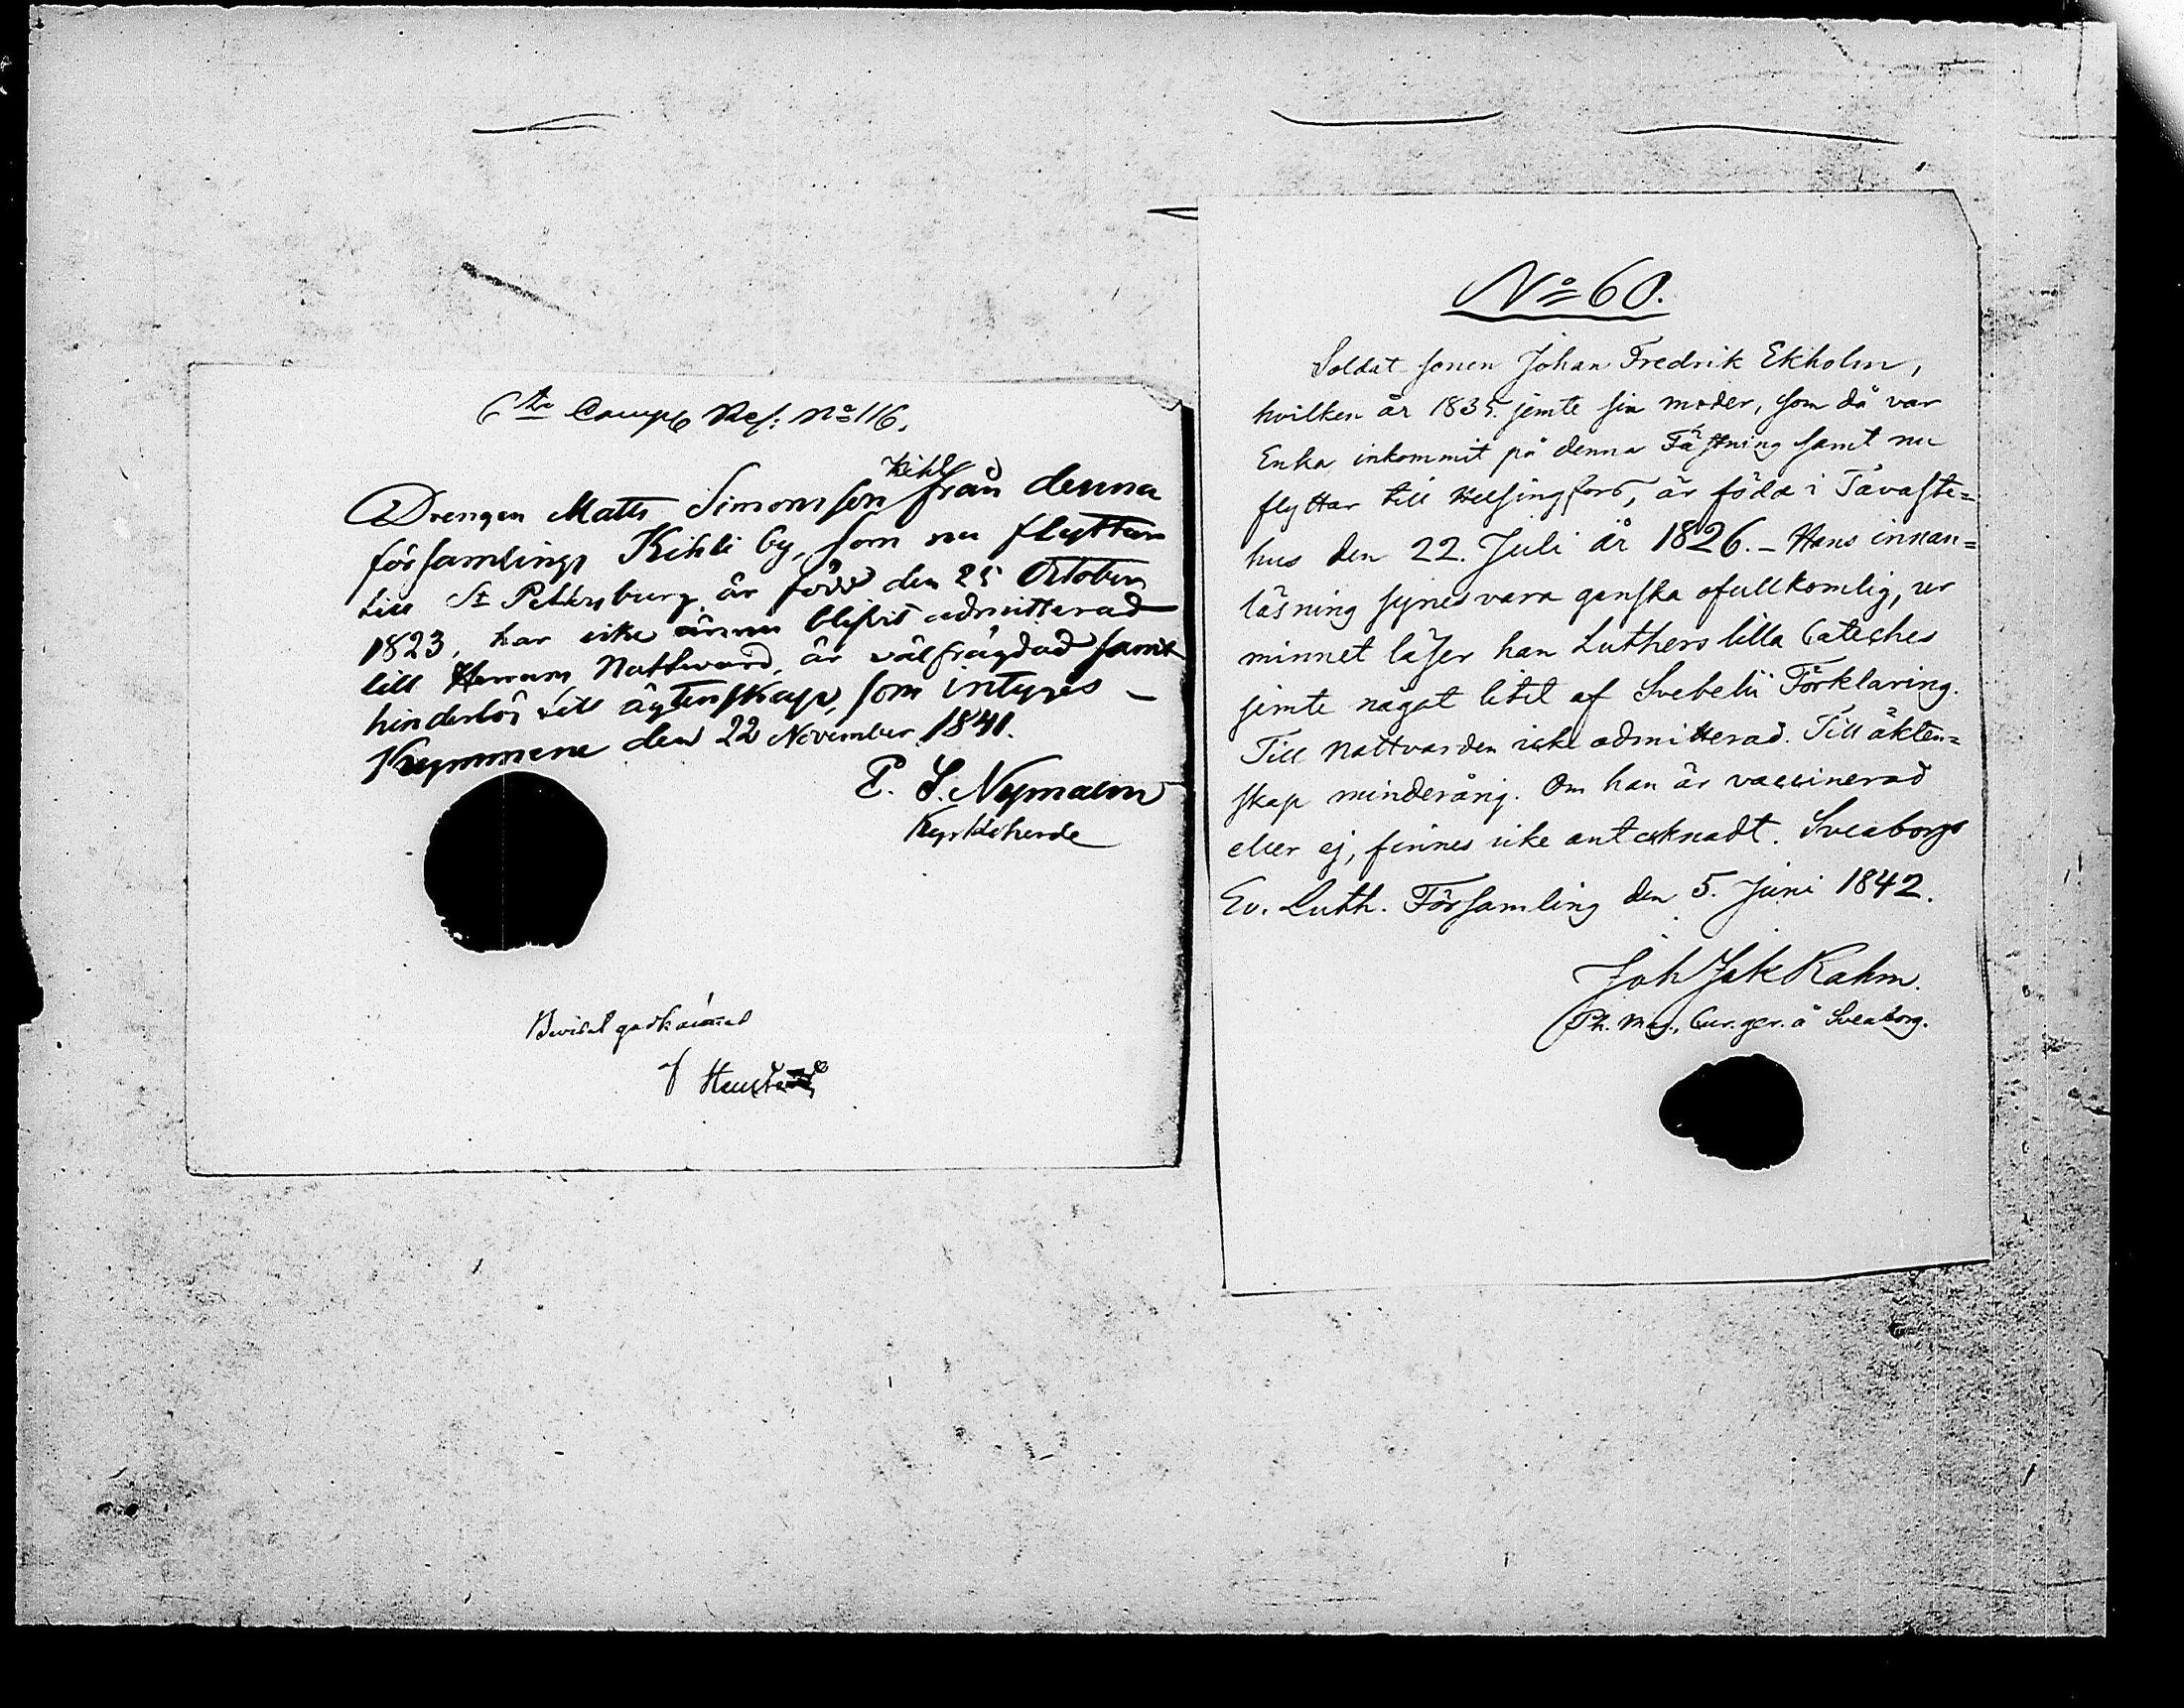 6te Comp Ref: No 116.
Drengen Matts Simonsson Kihl från denna
församlings Kihli by, som nu flyttar
till St Petersburg är född den 25 October
1823, har icke ännu blifvit admitterad
till Herrans Nattvard, är välfrägdad samt
hinderlös till ägtenskap, som intygas _
Kymmene den 22 November 1841.
P. S. Nymalm
Kyrkoherde
Beviset godkännes
No 60.
Soldat sonen Johan Fredrik Ekholm,
hvilken år 1835. jemte sin moder, som då var
Enka inkommit på denna Fästning samt nu
flyttar till Helsingfors, är född i Tavaste=
hus den 22. Juli år 1826. – Hans innan=
läsning synes vara ganska ofullkomlig, ur
minnet läser han Luthers lilla Cateches
jemte något litet af Svebelii Förklaring.
Till Nattvarden icke admitterad. Till äkten=
skap minderårig. Om han är vaccinerad
eller ej, finnes icke antecknadt. Sveaborgs
Ev. Luth. Församling den 5. Juni 1842.
Joh Jak Rahm.
Ph. Mag., Cur. ger. å Sveaborg.